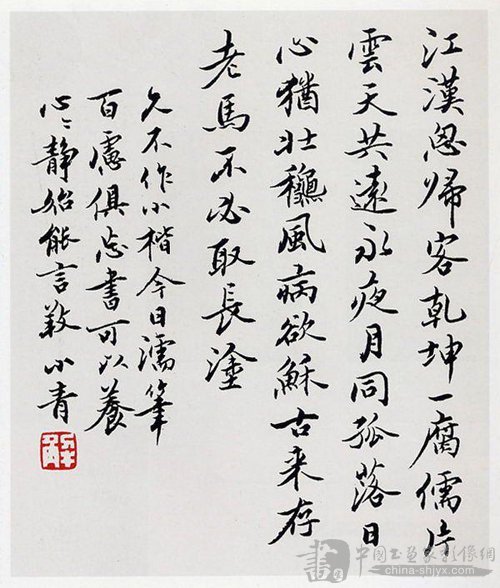 江漢思歸客乾坤一腐儒片
雲天共遠永夜月同孤落日
心猶壯穐風病欲穌古来存
老馬不必取長塗
久不作小楷今日濡筆
百慮俱忘書可以養
心〻静始能言 小青
中國书画家影像網
china-shjyx.com